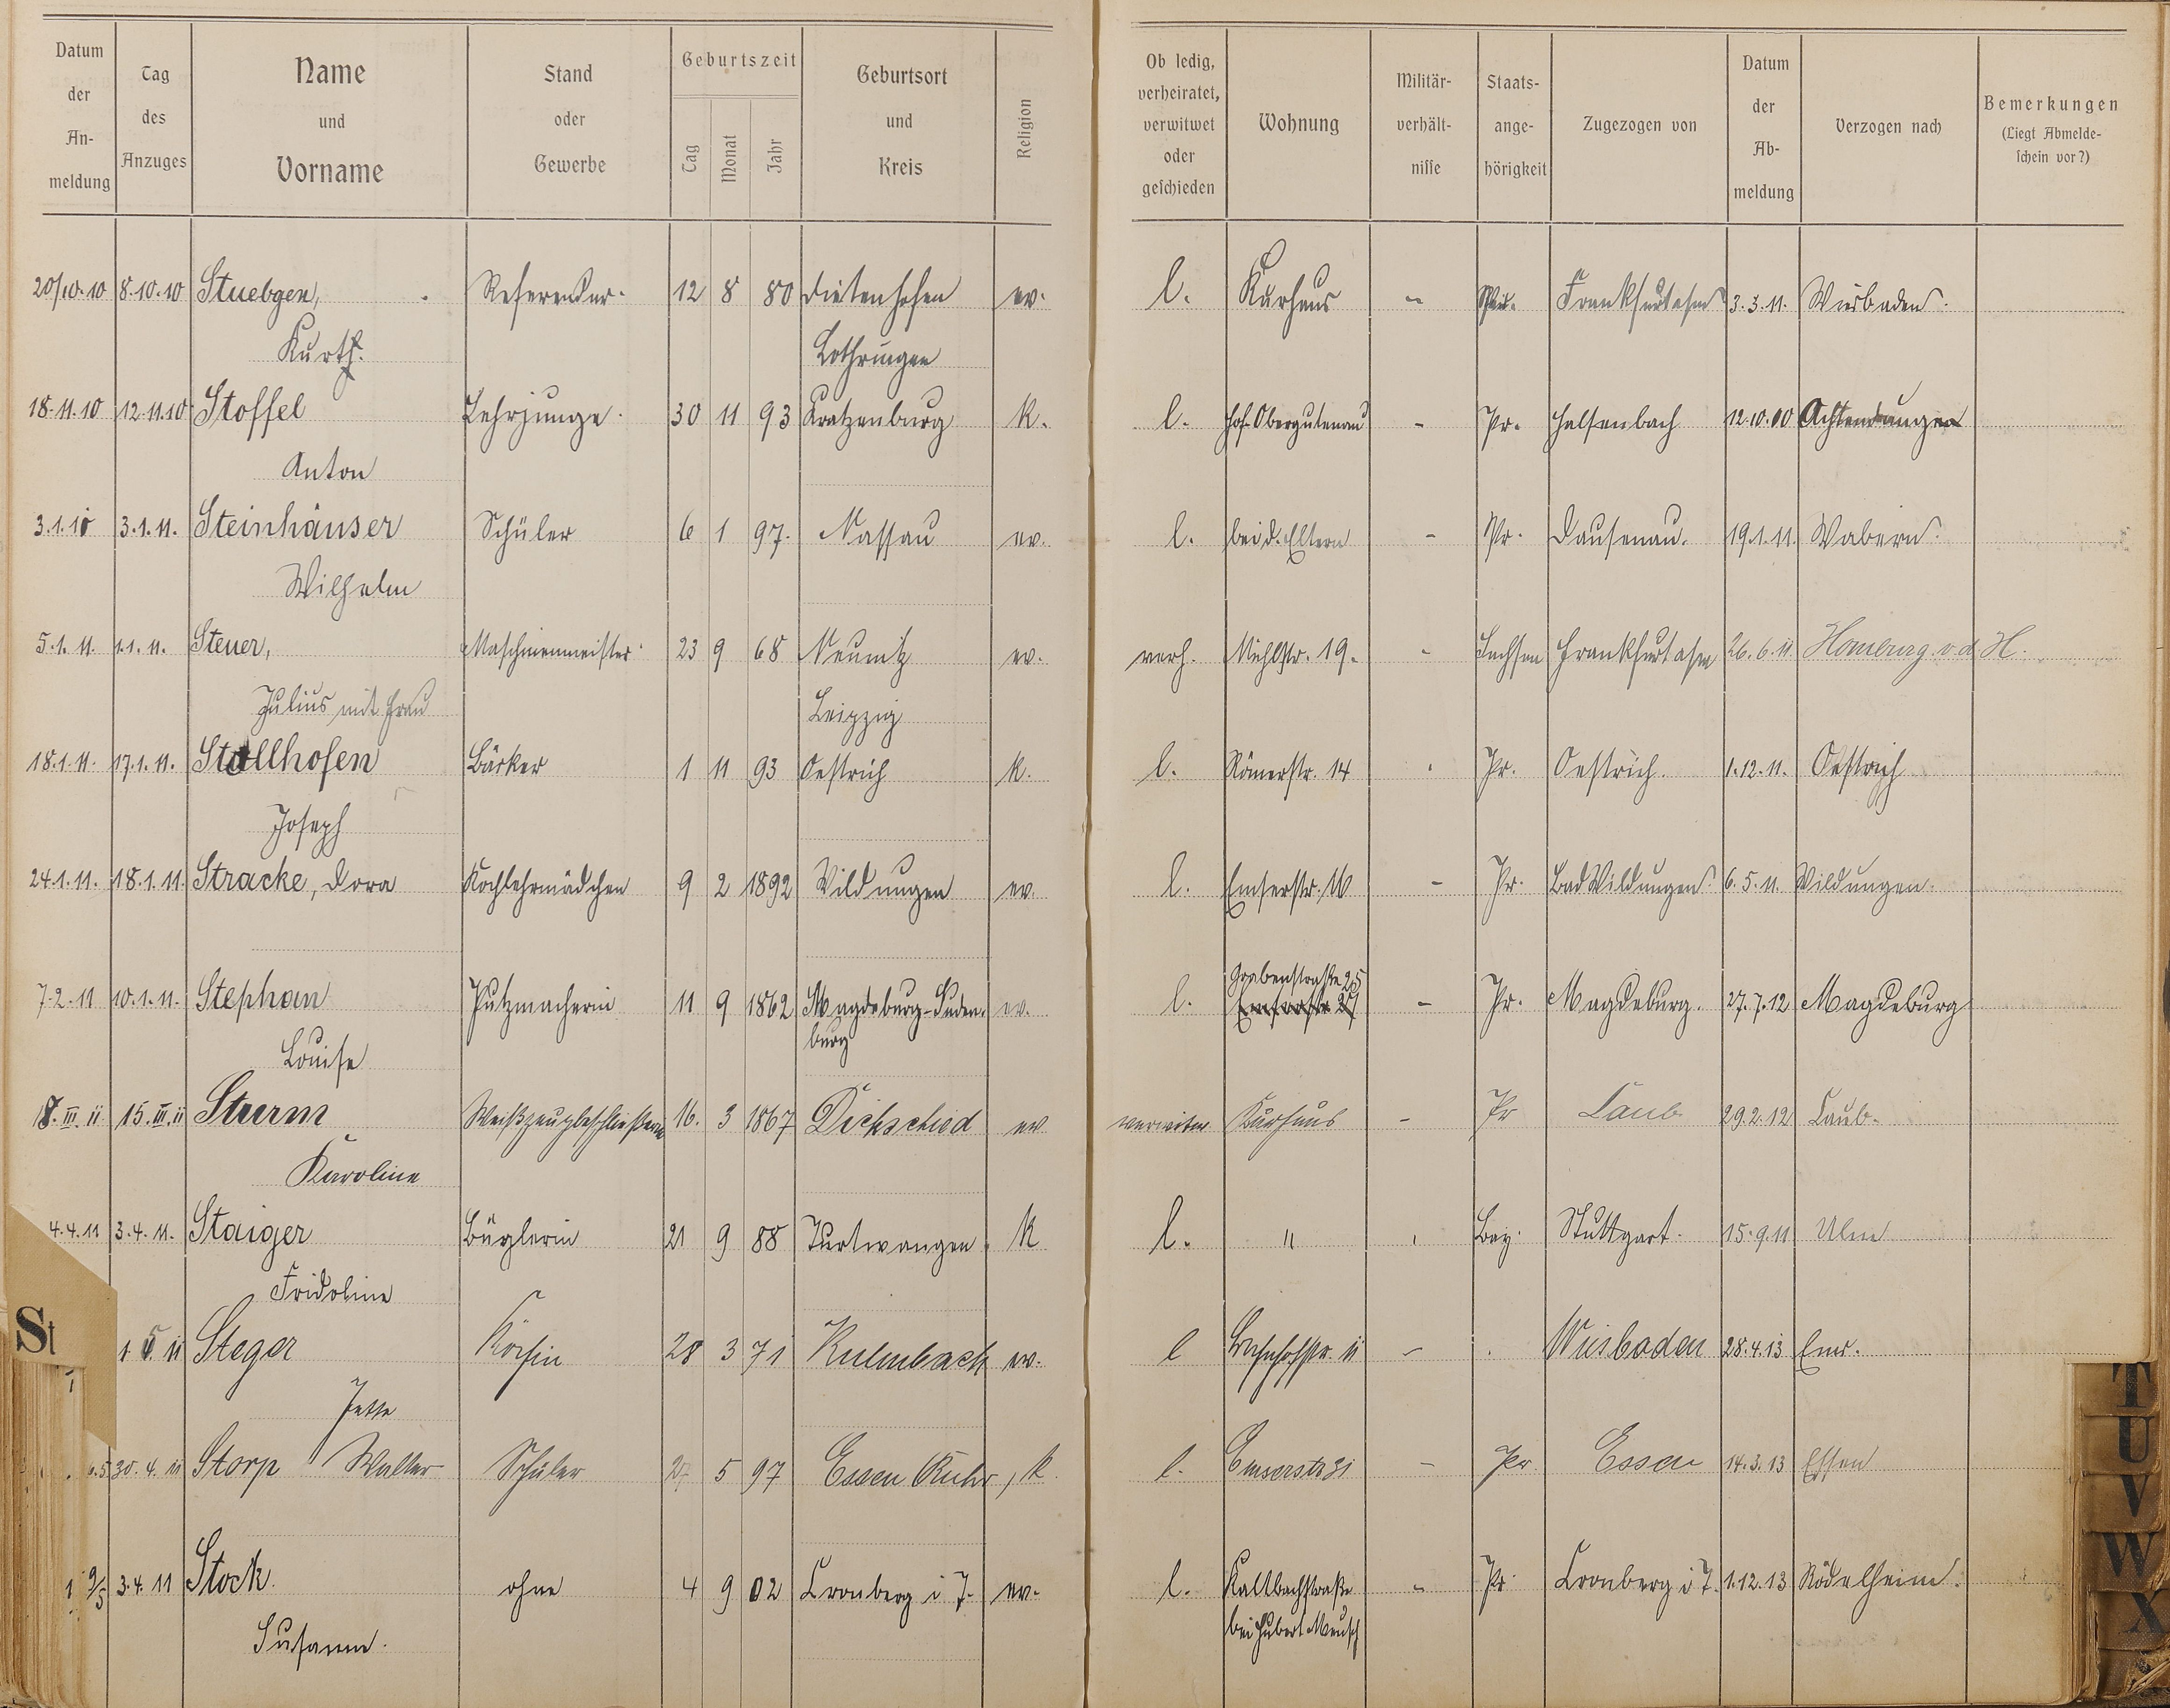 Datum der Anmeldung Tag des Anzuges Name und Vorname Stand oder Gewerbe Geburtszeit Tag Monat Jahr Geburtsort und Kreis Religion Ob ledig, verheiratet, verwitwet oder geschieden Wohnung Militärverhältnisse Staatsangehörigkeit Zugezogen von Datum der Abmeldung Verzogen nach Bemerkungen (Liegt Abmeldeschein vor?)
20/10.10 8.10.10 Stuebgen, Referendar. 12 8 80 Dietenhofen ev. l. Kurhaus " Frankfurt a/m 3.3.11. Wiesbaden.
Kurth. Lothringen
18.11.10 12.11.10 Stoffel Lehrjunge. 30 11 93 Kratzenburg k. l. Hof Obergutenau - Pr. Halsenbach 12.10.00
Anton
3.1.10 3.1.11. Steinhäuser Schüler 6 1 97. Nassau ev. l. bei d. Eltern - Pr. Dausenau. 19.1.11. Wabern.
Wilhelm
5.1.11. 1.1.11. Steuer, Maschinenmeister 23 9 68 Neumitz ev. verh. Mühlstr. 19. - Sachsen Frankfurt a/m 26.6.11 Homburg v.d.H.
Julius mit Frau Leipzig
18.1.11. 17.1.11. Stollhofen Bäcker 1 11 93 Oestrich k. l. Römerstr. 14 Pr. Oestrich. 1.12.11. Oestrich
Joseph
24.1.11. 18.1.11. Stracke, Dora Kochlehrmädchen 9 2 1892 Wildungen ev. l. Emserstr. 16 - Pr. Bad Wildungen. 6.5.11. Wildungen.
Grabenstraße 25
7.2.11 10.1.11. Stephan Putzmacherin 11 9 1862 Magdeburg-Suden- ev. l. Emserstr. 27 - Pr. Magdeburg. 27.7.12 Magdeburg
burg
Louise
18.III.11 15.III.11 Sturm Weißzeugbeschließerin 16. 3 1867 Dickschied ev verwitw. Kurhaus - Pr Caub 29.2.12 Caub.
Karoline
4.4.11 3.4.11. Staiger Büglerin 21 9 88 Furtwangen. k l. " Stuttgart. 15.9.11 Ulm
Fridoline
St
1 5 11 Steger Köchin 28 3 71 Kulmbach ev. l Bahnhofstr. 11 - Wiesbaden 28.4.13 Ems.
Jette
6.5 30.4.11 Storp Walter Schüler 27 5 97 Essen Ruhr, k. l. Emserstr 31 - Pr. Essen 14.3.13 Essen
1 9/5 3.4.11 Stock. ohne 4 9 02 Cronberg i T. ev. l. Kaltbachstraße " Pr. Cronberg i T. 1.12.13 Rödelheim.
Susanne. bei Hubert Meusch
T
U
V
W
X